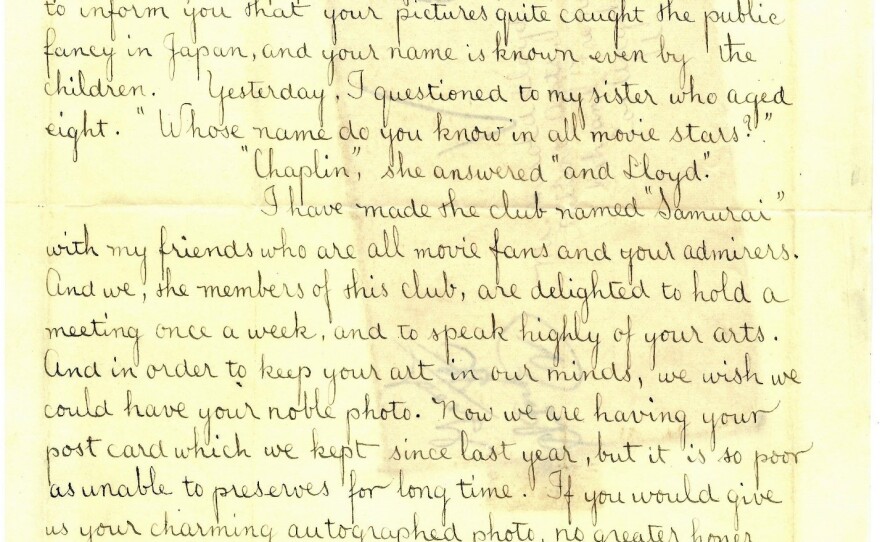 to inform you that your pictures quite caught the public
fancy in Japan, and your name is known even by the
children. Yesterday, I questioned to my sister who aged
eight. "Whose name do you know in all movie stars?"
"Chaplin", she answered "and Lloyd".
I have made the club named "Samurai"
with my friends who are all movie fans and your admirers.
And we, the members of this club, are delighted to hold a
meeting once a week, and to speak highly of your arts.
And in order to keep your art in our minds, we wish we
could have your noble photo. Now we are having your
post card which we kept since last year, but it is so poor
as unable to preserves for long time. If you would give
us your charming autographed photo, no greater honor